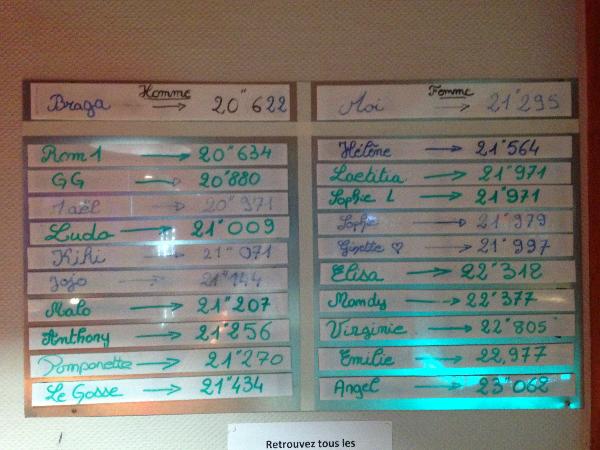 Homme
Braga → 20"622
Rom1 → 20"634
GG → 20"880
20"971
Ludo → 21"009
Kiki → 21"071
Jojo → 21"144
Malo → 21"207
Anthony → 21"256
Pomponette → 21"270
Le Gosse → 21"434
Femme
→ 21"295
Hélène → 21"564
Laetitia → 21"971
Sophie L → 21"971
Sophie → 21"979
Ginette ♡ → 21"997
Elisa → 22"318
Mamdy → 22"377
Virginie → 22"805
Emilie → 22,977
Angel → 23"062
Retrouvez tous les